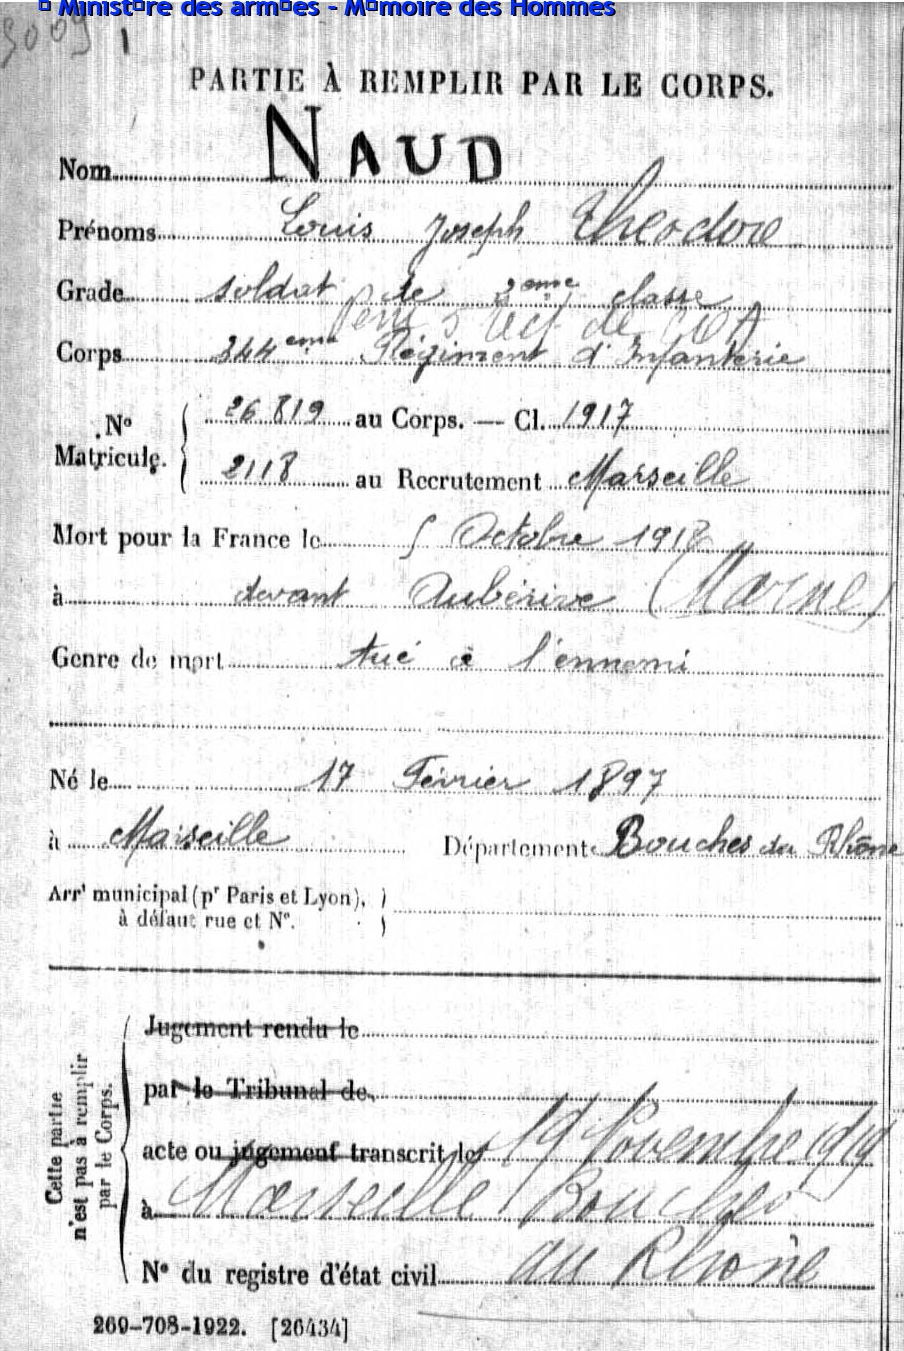 © Ministère des armées - Mémoire des Hommes
3009 1
PARTIE À REMPLIR PAR LE CORPS.
Nom NAUD
Prénoms Louis Joseph Théodore
Grade soldat de 2ème classe
5 Sect de COA
Corps 344ème Régiment d'Infanterie
No Matricule. { 26819 au Corps. — Cl. 1917
2118 au Recrutement Marseille
Mort pour la France le 5 Octobre 1918
à devant Aubérive (Marne)
Genre de mort tué à l'ennemi
Né le 17 Février 1897
à Marseille Département Bouches du Rhône
Arrt municipal (pr Paris et Lyon), }
à défaut rue et No.
Cette partie n'est pas à remplir par le Corps.
Jugement rendu le
par le Tribunal de
acte ou jugement transcrit le 19 Novembre 1919
à Marseille Bouches
No du registre d'état civil du Rhône
269-708-1922. [26434]